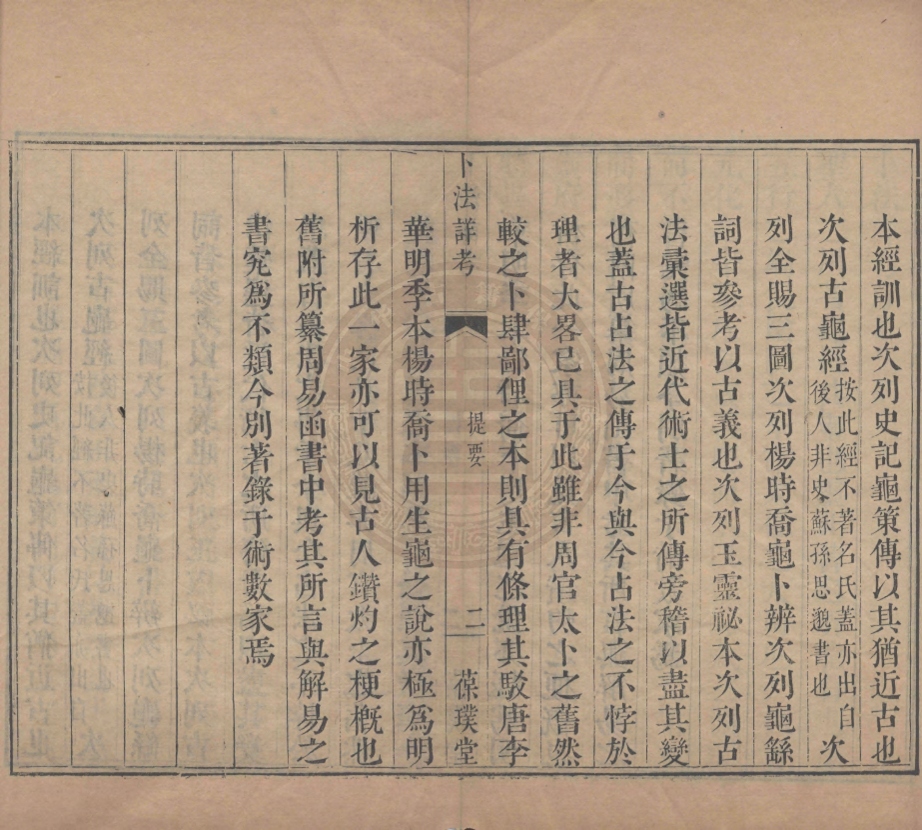 本經訓也次列史記龜策傳以其猶近古也
次列古龜經按此經不著名氏蓋亦出自後人非史蘇孫思邈書也次
列全賜三圖次列楊時喬龜卜辨次列龜繇
詞皆參考以古義也次列玉靈祕本次列古
法彚選皆近代術士之所傳旁稽以盡其變
也蓋古占法之傳于今與今占法之不悖於
理者大畧已具于此雖非周官太卜之舊然
較之卜肆鄙俚之本則具有條理其駁唐李
卜法詳考 提要 二 葆璞堂
華明季本楊時喬卜用生龜之說亦極為明
析存此一家亦可以見古人鑽灼之梗槪也
舊附所纂周易函書中考其所言與解易之
書究為不類今別著錄于術數家焉